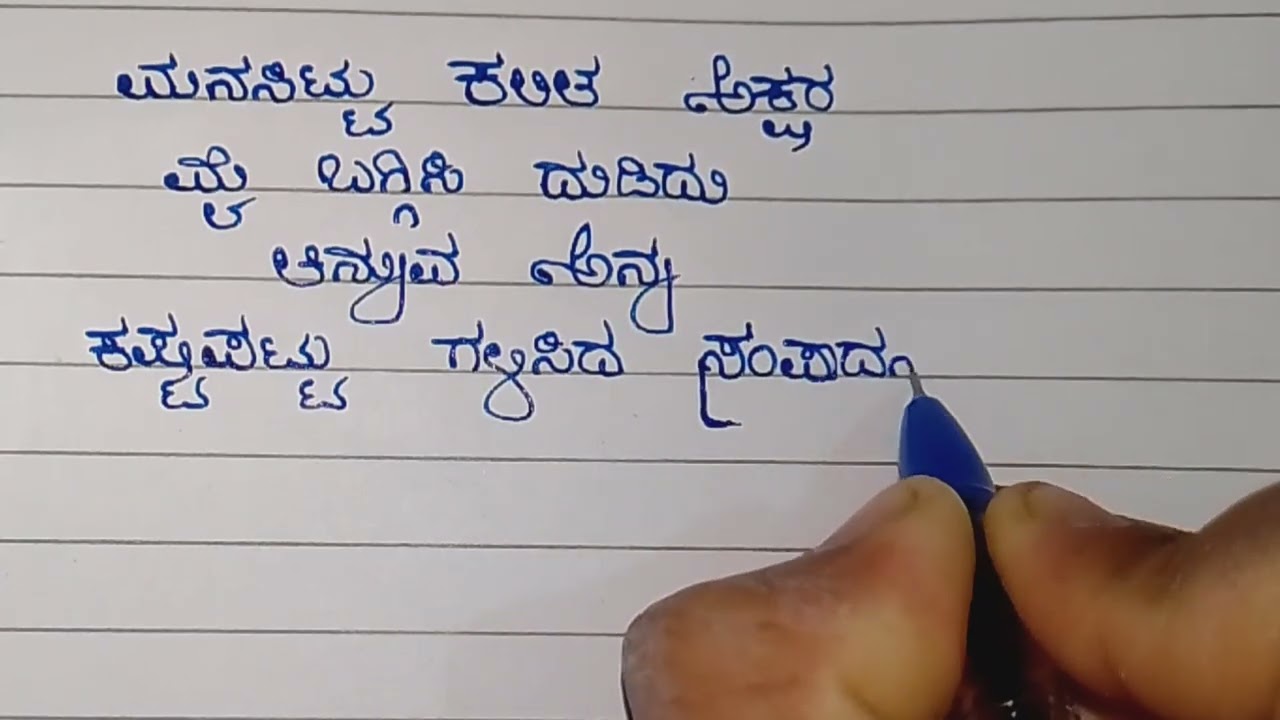 ಮನಸಿಟ್ಟು ಕಲಿತ ಅಕ್ಷರ
ಮೈ ಬಗ್ಗಿಸಿ ದುಡಿದು
ತಿನ್ನುವ ಅನ್ನ
ಕಷ್ಟಪಟ್ಟು ಗಳಿಸಿದ ಸಂಪಾದ